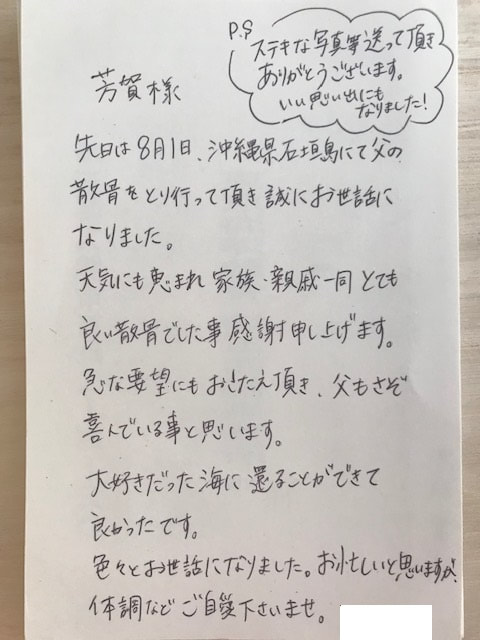 P.S
ステキな写真等送って頂き
ありがとうございます。
いい思い出にも
なりました!
芳賀様
先日は8月1日、沖縄県石垣島にて父の
散骨をとり行って頂き誠にお世話に
なりました。
天気にも恵まれ家族・親戚一同とても
良い散骨でした事感謝申し上げます。
急な要望にもおこたえ頂き、父もさぞ
喜んでいる事と思います。
大好きだった海に還ることができて
良かったです。
色々とお世話になりました。お忙しいと思いますが、
体調などご自愛下さいませ。